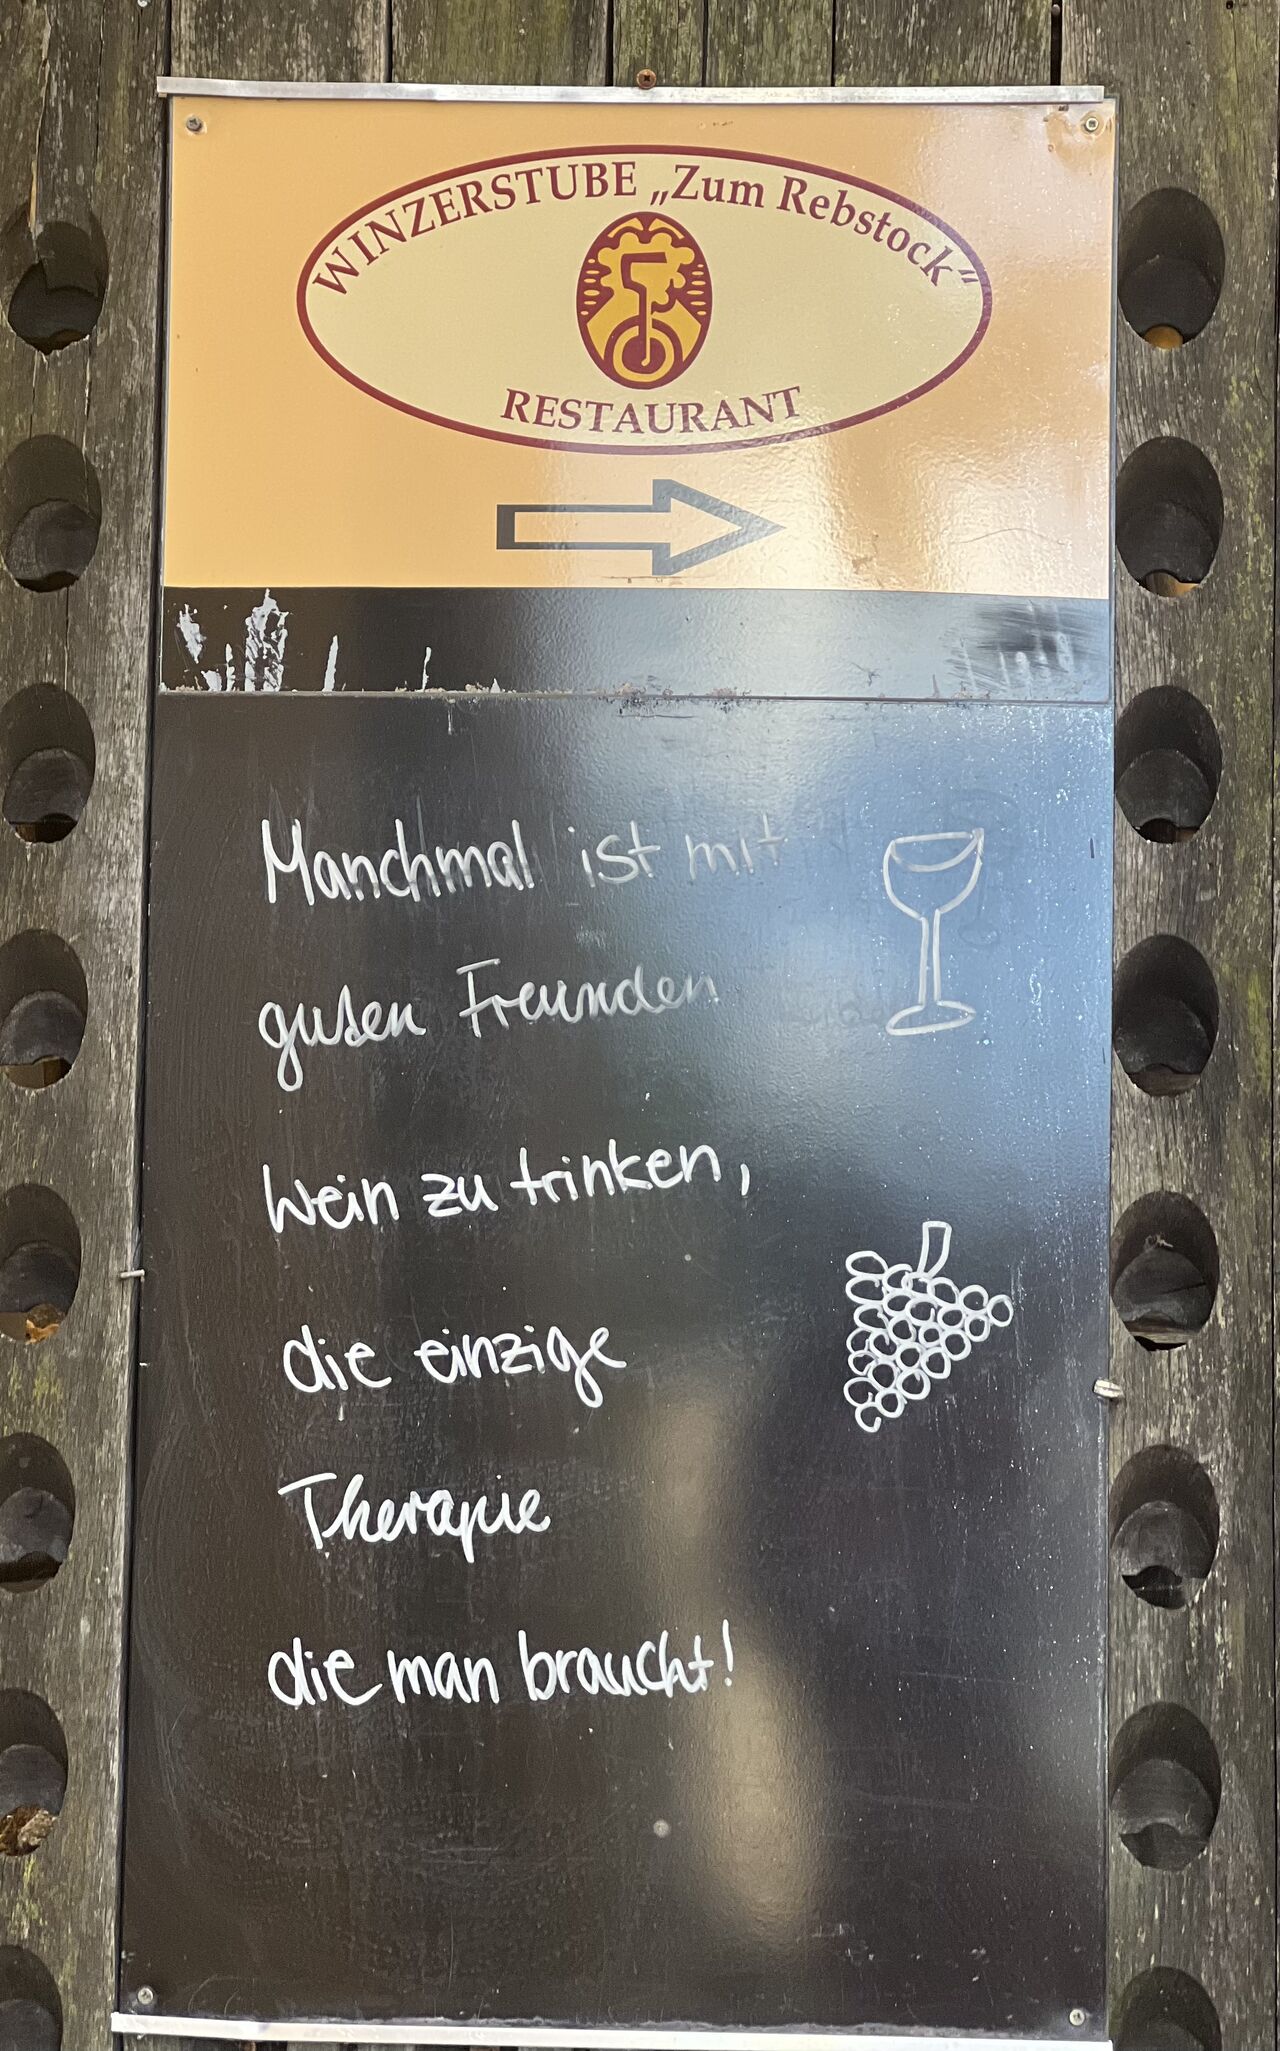 WINZERSTUBE „Zum Rebstock“
RESTAURANT
Manchmal ist mit
guten Freunden
Wein zu trinken,
die einzige
Therapie
die man braucht!